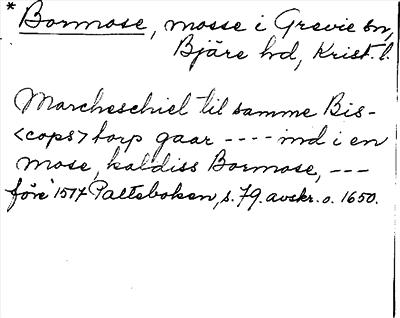 * Bormose, mosse i Grevie sn,
Bjäre hd, Krist. l.
Marcheschiel til samme Bis-
<cops> torp gaar ---- ind i en
mose, kaldiss Bormose, ---
före 1517 Paltseboken, s. 79. avskr. o. 1650.